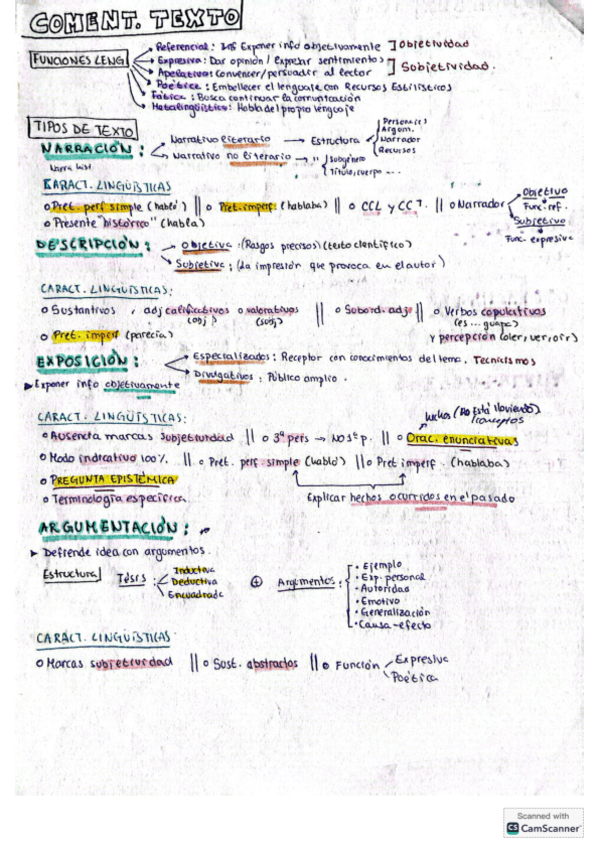 COMENT. TEXTO
FUNCIONES LENG
Referencial: Exponer info objetivamente ] Objetividad
Expresiva: Dar opinión / expresar sentimientos
Apelativa: Convencer/persuadir al lector ] Subjetividad.
Poética: Embellecer el lenguaje con Recursos Estilísticos
Fática: Busca continuar la comunicación
Metalingüística: Habla del propio lenguaje
TIPOS DE TEXTO
NARRACIÓN:
Narrativo literario → Estructura
Personajes
Argum.
Narrador
Recursos
Narrativo no literario → "
Subgénero
Título, cuerpo ...
CARACT. LINGÜÍSTICAS
o Pret. perf simple (habló) || o Pret. imperf. (hablaba) || o CCL y CCT. || o Narrador
Objetivo
Func. ref.
Subjetivo
Func. expresiva
o Presente "histórico" (habla)
DESCRIPCIÓN:
Objetiva: (Rasgos precisos) (texto científico)
Subjetiva: (La impresión que provoca en el autor)
CARACT. LINGÜÍSTICAS:
o Sustantivos, adj calificativos o valorativos || o Subord. adj || o Verbos copulativos
(obj) (subj) (es ... guapa)
o Pret. imperf (parecía) y percepción (oler, ver, oír)
EXPOSICIÓN:
Especializados: Receptor con conocimientos del tema. Tecnicismos
Divulgativos: Público amplio.
Exponer info objetivamente
CARACT. LINGÜÍSTICAS:
hechos (No está lloviendo)
conceptos
o Ausencia marcas subjetividad || o 3ª pers → NO 1ª p. || o Orac. enunciativas
o Modo indicativo 100% || o Pret. perf simple (habló) || o Pret imperf. (hablaba)
o PREGUNTA EPISTÉMICA
o Terminología específica
Explicar hechos ocurridos en el pasado
ARGUMENTACIÓN:
Defiende idea con argumentos.
Estructura
Tesis:
Inductiva
Deductiva
Encuadrada
+ Argumentos:
• Ejemplo
• Exp. personal
• Autoridad
• Emotivo
• Generalización
• Causa-efecto
CARACT. LINGÜÍSTICAS
o Marcas subjetividad || o Sust. abstractos || o Función
Expresiva
Poética
Scanned with
CS CamScanner